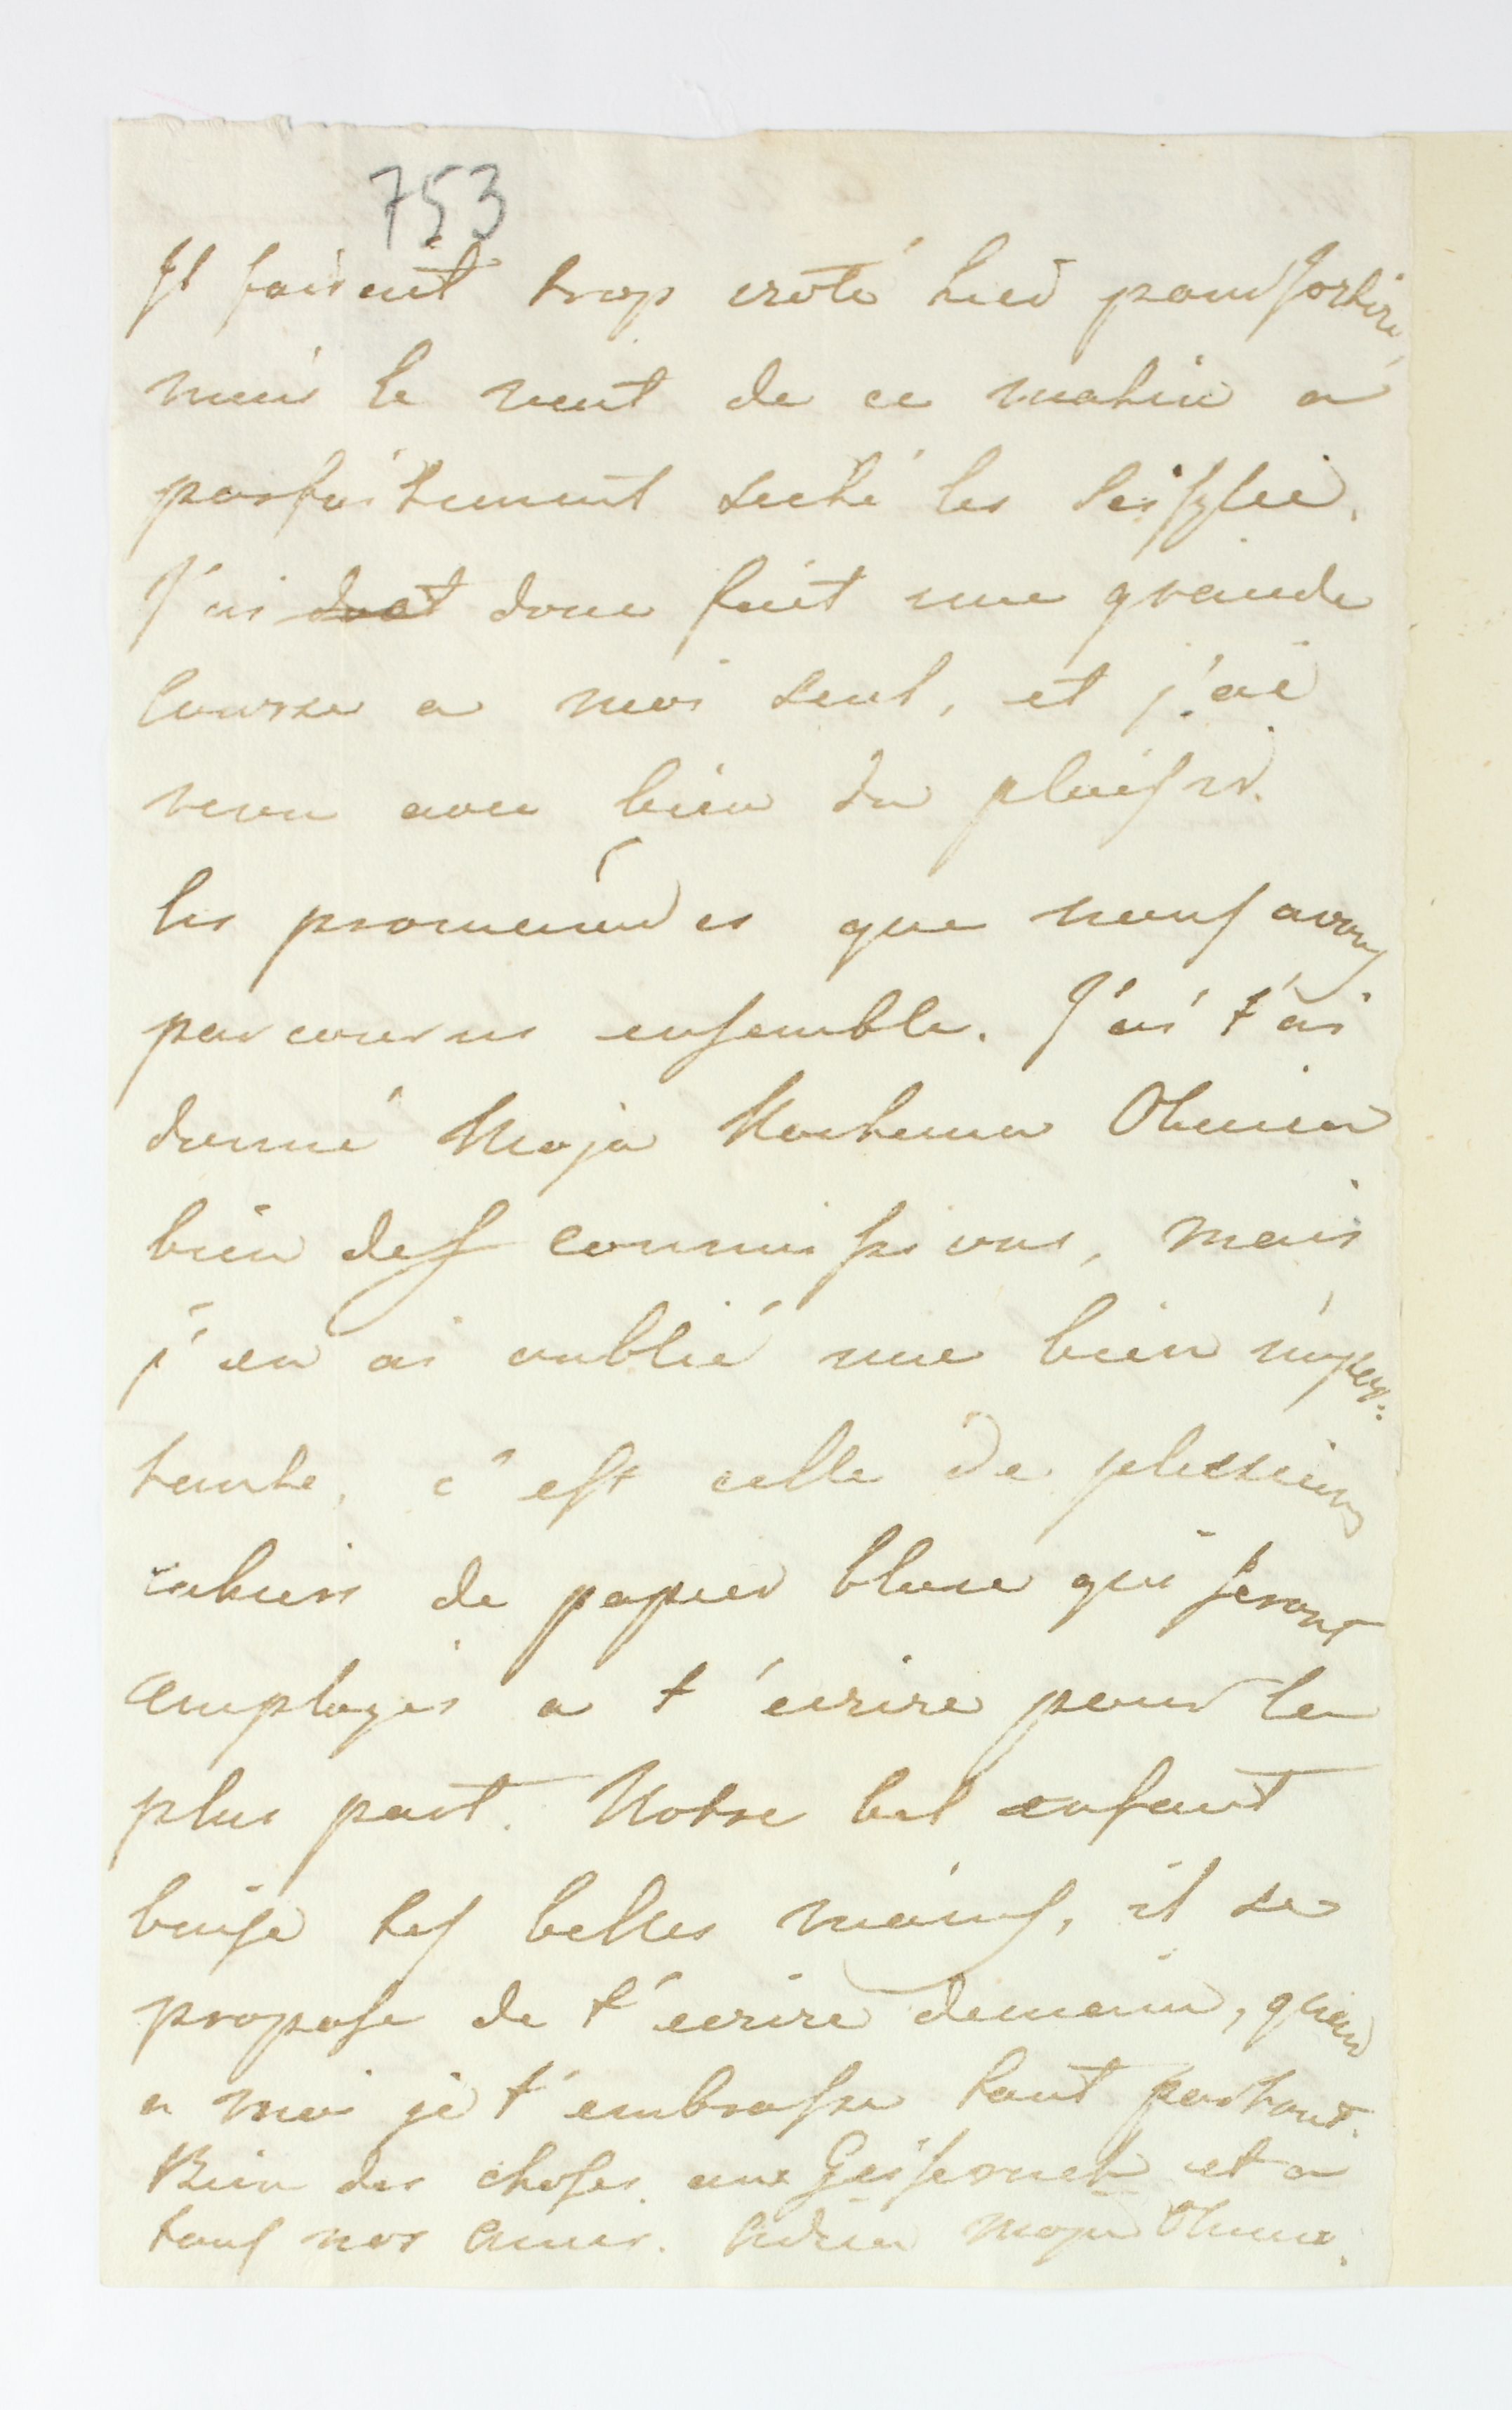 753
Il faisait trop croté hier pour sortir,
mais le vent de ce matin a
parfaitement seché les
J'ai donc fait une grande
course a moi seul, et j'ai
revu avec bien du plaisir
les promenades que nous avons
parcourus ensemble. J'ai t'ai
donné Moja Kochana Olunia
bien des commissions, mais
j'en ai oublié une bien impor:
tante, c'est celle de plusieurs
cahiers de papier blanc qui seront
employés a t'ecrire pour la
plus part. Notre bel enfant
baise tes belles mains, il se
propose de t'ecrire demain, quand
a moi je t'embrasse tout partout.
Bien des choses aux et a
tous nos amis. Adieu Moja Olunia.